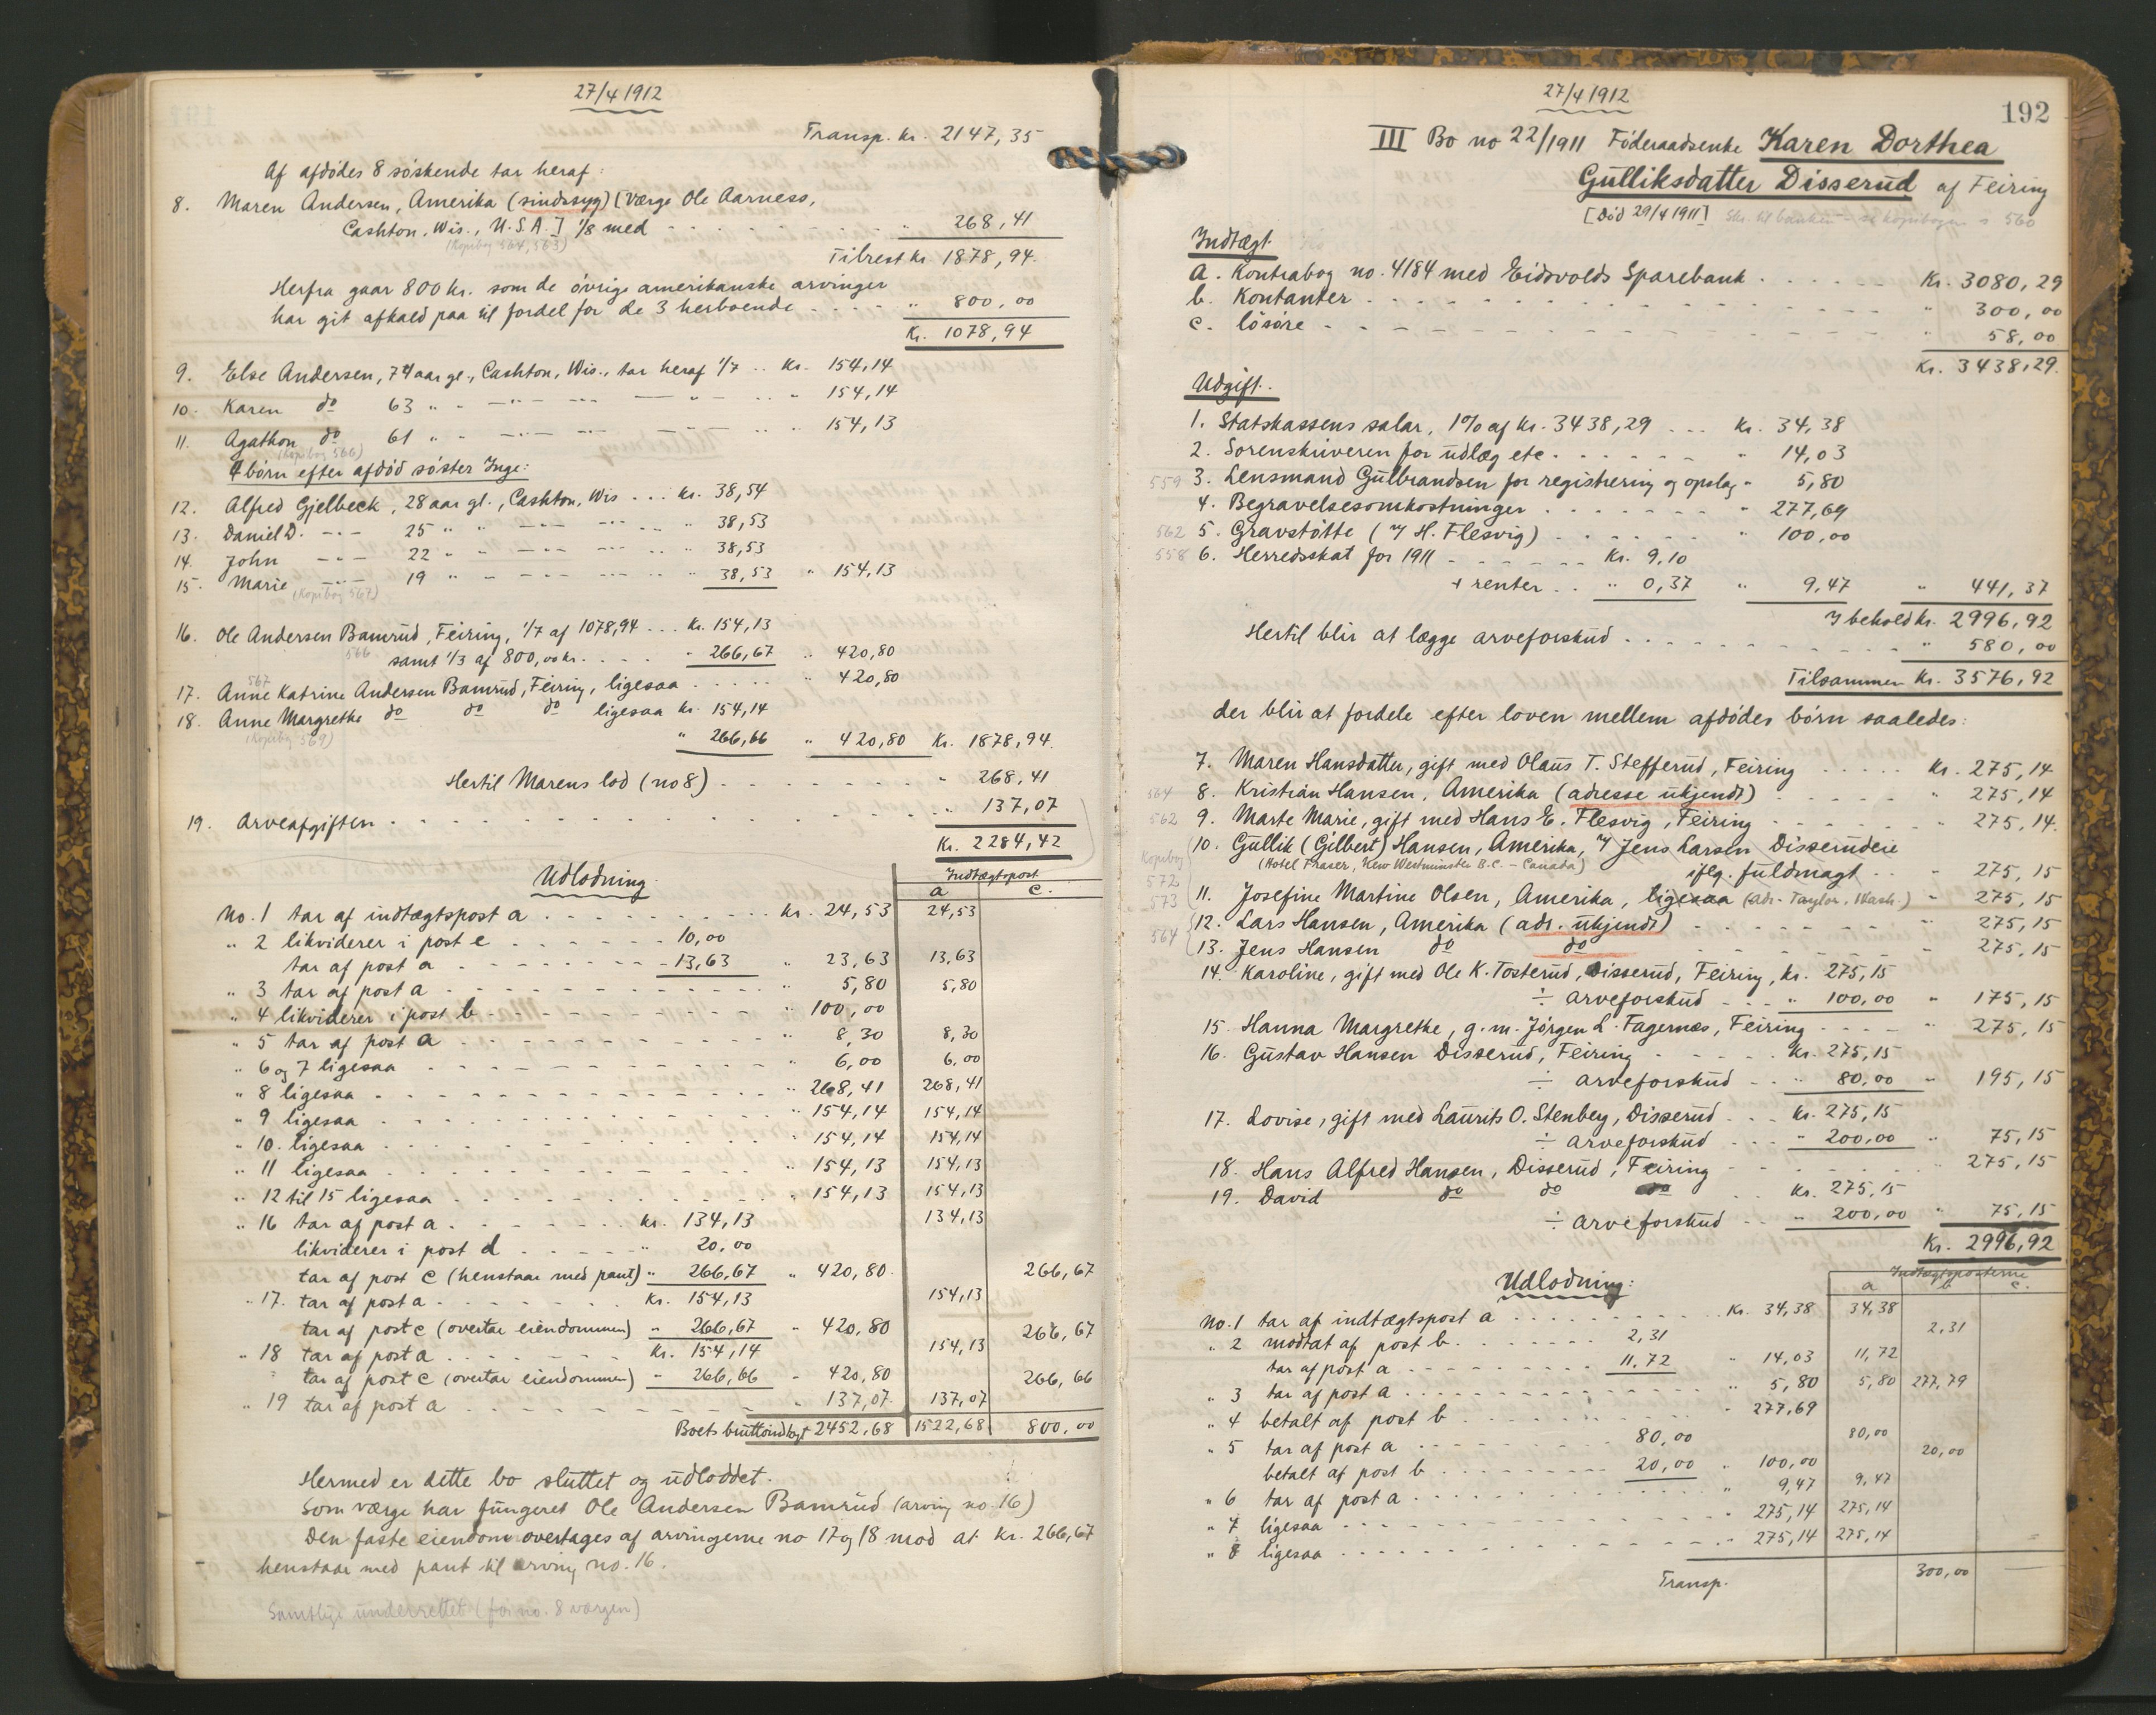 27/4 1912
Transp. kr. 2147,35
Af afdödes 8 söskende tar heraf:
8. Maren Andersen, Amerika (sindssyg) [Værge Ole Aarness,
Cashton, Wis., U.S.A.] 1/8 med " 268,41
(Kopibog 564, 563)
Tilrest kr 1878,94.
Herfra gaar 800 kr. som de övrige amerikanske arvinger
har git afkald paa til fordel for de 3 herboende " 800,00
Kr. 1078,94
9. Else Andersen, 74 aar gl., Cashton, Wis., tar heraf 1/7 .. kr. 154,14
10. Karen do 63 " " " 154,14
11. Agathon do 61 " " " 154,13
(Kopibog 566)
4 börn efter afdöd söster Inge:
12. Alfred Gjelbeck, 28 aar gl., Cashton, Wis ... kr. 38,54
13. Daniel D. -"- 25 " " " 38,53
14. John -"- 22 " " " 38,53
15. Marie -"- 19 " " " 38,53 " 154,13
(Kopibog 567)
16. Ole Andersen Bamrud, Feiring, 1/7 af 1078,94 ... kr. 154,13
566 samt 1/3 af 800,00 kr. " 266,67 " 420,80
567
17. Anne Katrine Andersen Bamrud, Feiring, ligesaa " 420,80
18. Anne Margrethe do do do ligesaa kr. 154,14
(Kopibog 569) " 266,66 " 420,80 Kr. 1878,94.
Hertil Marens lod (no 8) " 268,41
19. Arveafgiften " 137,07
Kr. 2284,42
Udlodning. Indtægtspost
a c.
No. 1 tar af indtægtspost a kr. 24,53 24,53
" 2 likviderer i post e 10,00
tar af post a 13,63 " 23,63 13,63
" 3 tar af post a " 5,80 5,80
" 4 likviderer i post b " 100,00
" 5 tar af post a " 8,30 8,30
" 6 og 7 ligesaa " 6,00 6,00
" 8 ligesaa " 268,41 268,41
" 9 ligesaa " 154,14 154,14
" 10. ligesaa " 154,14 154,14
" 11 ligesaa " 154,13 154,13
" 12 til 15 ligesaa " 154,13 154,13
" 16 tar af post a kr. 134,13 134,13
likviderer i post d " 20,00
tar af post c (henstaar med pant) " 266,67 " 420,80 266,67
" 17. tar af post a kr. 154,13 154,13
tar af post c (overtar eiendommen) " 266,67 " 420,80 266,67
" 18 tar af post a kr. 154,14 154,13
tar af post c (overtar eiendommen) " 266,66 " 420,80 266,66
" 19 tar af post a " 137,07 137,07
Boets bruttoindtægt 2452,68 1522,68 800,00
Hermed er dette bo sluttet og udloddet.
Som værge har fungeret Ole Andersen Bamrud (arving no. 16)
Den faste eiendom overtages af arvingerne no 17 og 18 mod at kr. 266,67
henstaar med pant til arving no. 16.
Samtlige underrettet (for no. 8 værgen)
27/4 1912
192
III Bo no 22/1911 Föderaadsenke Karen Dorthea
Gulliksdatter Disserud af Feiring
[Död 29/4 1911] Skr. til banken - se kopibogen s 560
Indtægt.
a. Kontrabog no. 4184 med Eidsvolds Sparebank Kr. 3080,29
b. Kontanter " 300,00
c. lösöre " 58,00
Kr. 3438,29.
Udgift.
1. Statskassens salar, 1% af kr. 3438,29 ... kr. 34,38
2. Sorenskriveren for udlæg etc " 14,03
559 3. Lensmand Gulbrandsen for registrering og opslag " 5,80
4. Begravelsesomkostninger " 277,69
562 5. Gravstötte (v/ H. Flesvig) " 100,00
558 6. Herredsskat for 1911 kr. 9,10
+ renter .. " 0,37 " 9,47 " 441,37
I behold kr. 2996,92
Hertil blir at lægge arveforskud " 580,00
Tilsammen kr. 3576,92
der blir at fordele efter loven mellem afdödes börn saaledes:
7. Maren Hansdatter, gift med Olaus T. Stefferud, Feiring Kr. 275,14
564 8. Kristian Hansen, Amerika (adresse ukjendt) " 275,14
562 9. Marte Marie, gift med Hans E. Flesvig, Feiring " 275,14.
10. Gullik (Gilbert) Hansen, Amerika, v/ Jens Larsen Disserudeie
Kopibog (Hotel Fraser, New Westminster B.C. - Canada) iflg. fuldmagt " 275,15
572
573 11. Josefine Martine Olsen, Amerika, ligesaa (adr. Taylor, Wash.) " 275,15
12. Lars Hansen, Amerika (adr. ukjendt) " 275,15
564 13. Jens Hansen do do " 275,15
14. Karoline, gift med Ole K. Tosterud, Disserud, Feiring, kr. 275,15
÷ arveforskud " 100,00 " 175,15
15. Hanna Margrethe, g. m. Jörgen L. Fagernæs, Feiring " 275,15
16. Gustav Hansen Disserud, Feiring kr. 275,15
÷ arveforskud " 80,00 " 195,15
17. Lovise, gift med Laurits O. Stenberg, Disserud kr. 275,15
÷ arveforskud " 200,00 " 75,15
18. Hans Alfred Hansen, Disserud, Feiring " 275,15
19. David do do do kr. 275,15
÷ arveforskud " 200,00 " 75,15
Kr. 2996,92
Udlodning: Indtægtsposterne
a b c.
No. 1 tar af indtægtspost a Kr. 34,38 34,38
" 2 modtat af post b 2,31 2,31
tar af post a 11,72 " 14,03 11,72
" 3 tar af post a " 5,80 5,80
" 4 betalt af post b " 277,69 277,79
" 5 tar af post a 80,00 80,00
betalt af post b 20,00 " 100,00 20,00
" 6 tar af post a " 9,47 9,47
" 7 ligesaa " 275,14 275,14
" 8 ligesaa " 275,14 275,14
Transp. 300,00